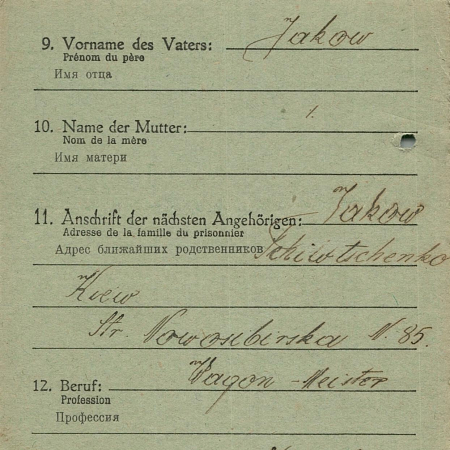 9. Vorname des Vaters: Jakow
Prénom du père
Имя отца
10. Name der Mutter:
Nom de la mère
Имя матери
11. Anschrift der nächsten Angehörigen: Jakow
Adresse de la famille du prisonnier
Адрес ближайших родственников Schiwtschenko
Kiew
Str. Nowosibirska N. 85.
12. Beruf: Wagon-Meister
Profession
Профессия